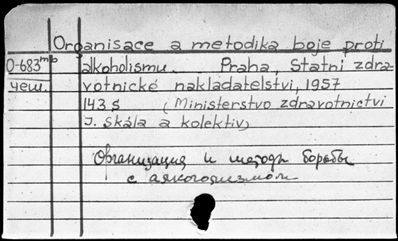 Organisace a metodika boje proti
0-683 mb alkoholismu. Praha, Statní zdra-
чеш. votnické nakladatelství, 1957
143 s (Ministerstvo zdravotnictví
J. Skála a kolektiv)
Организация и методы борьбы
с алкоголизмом